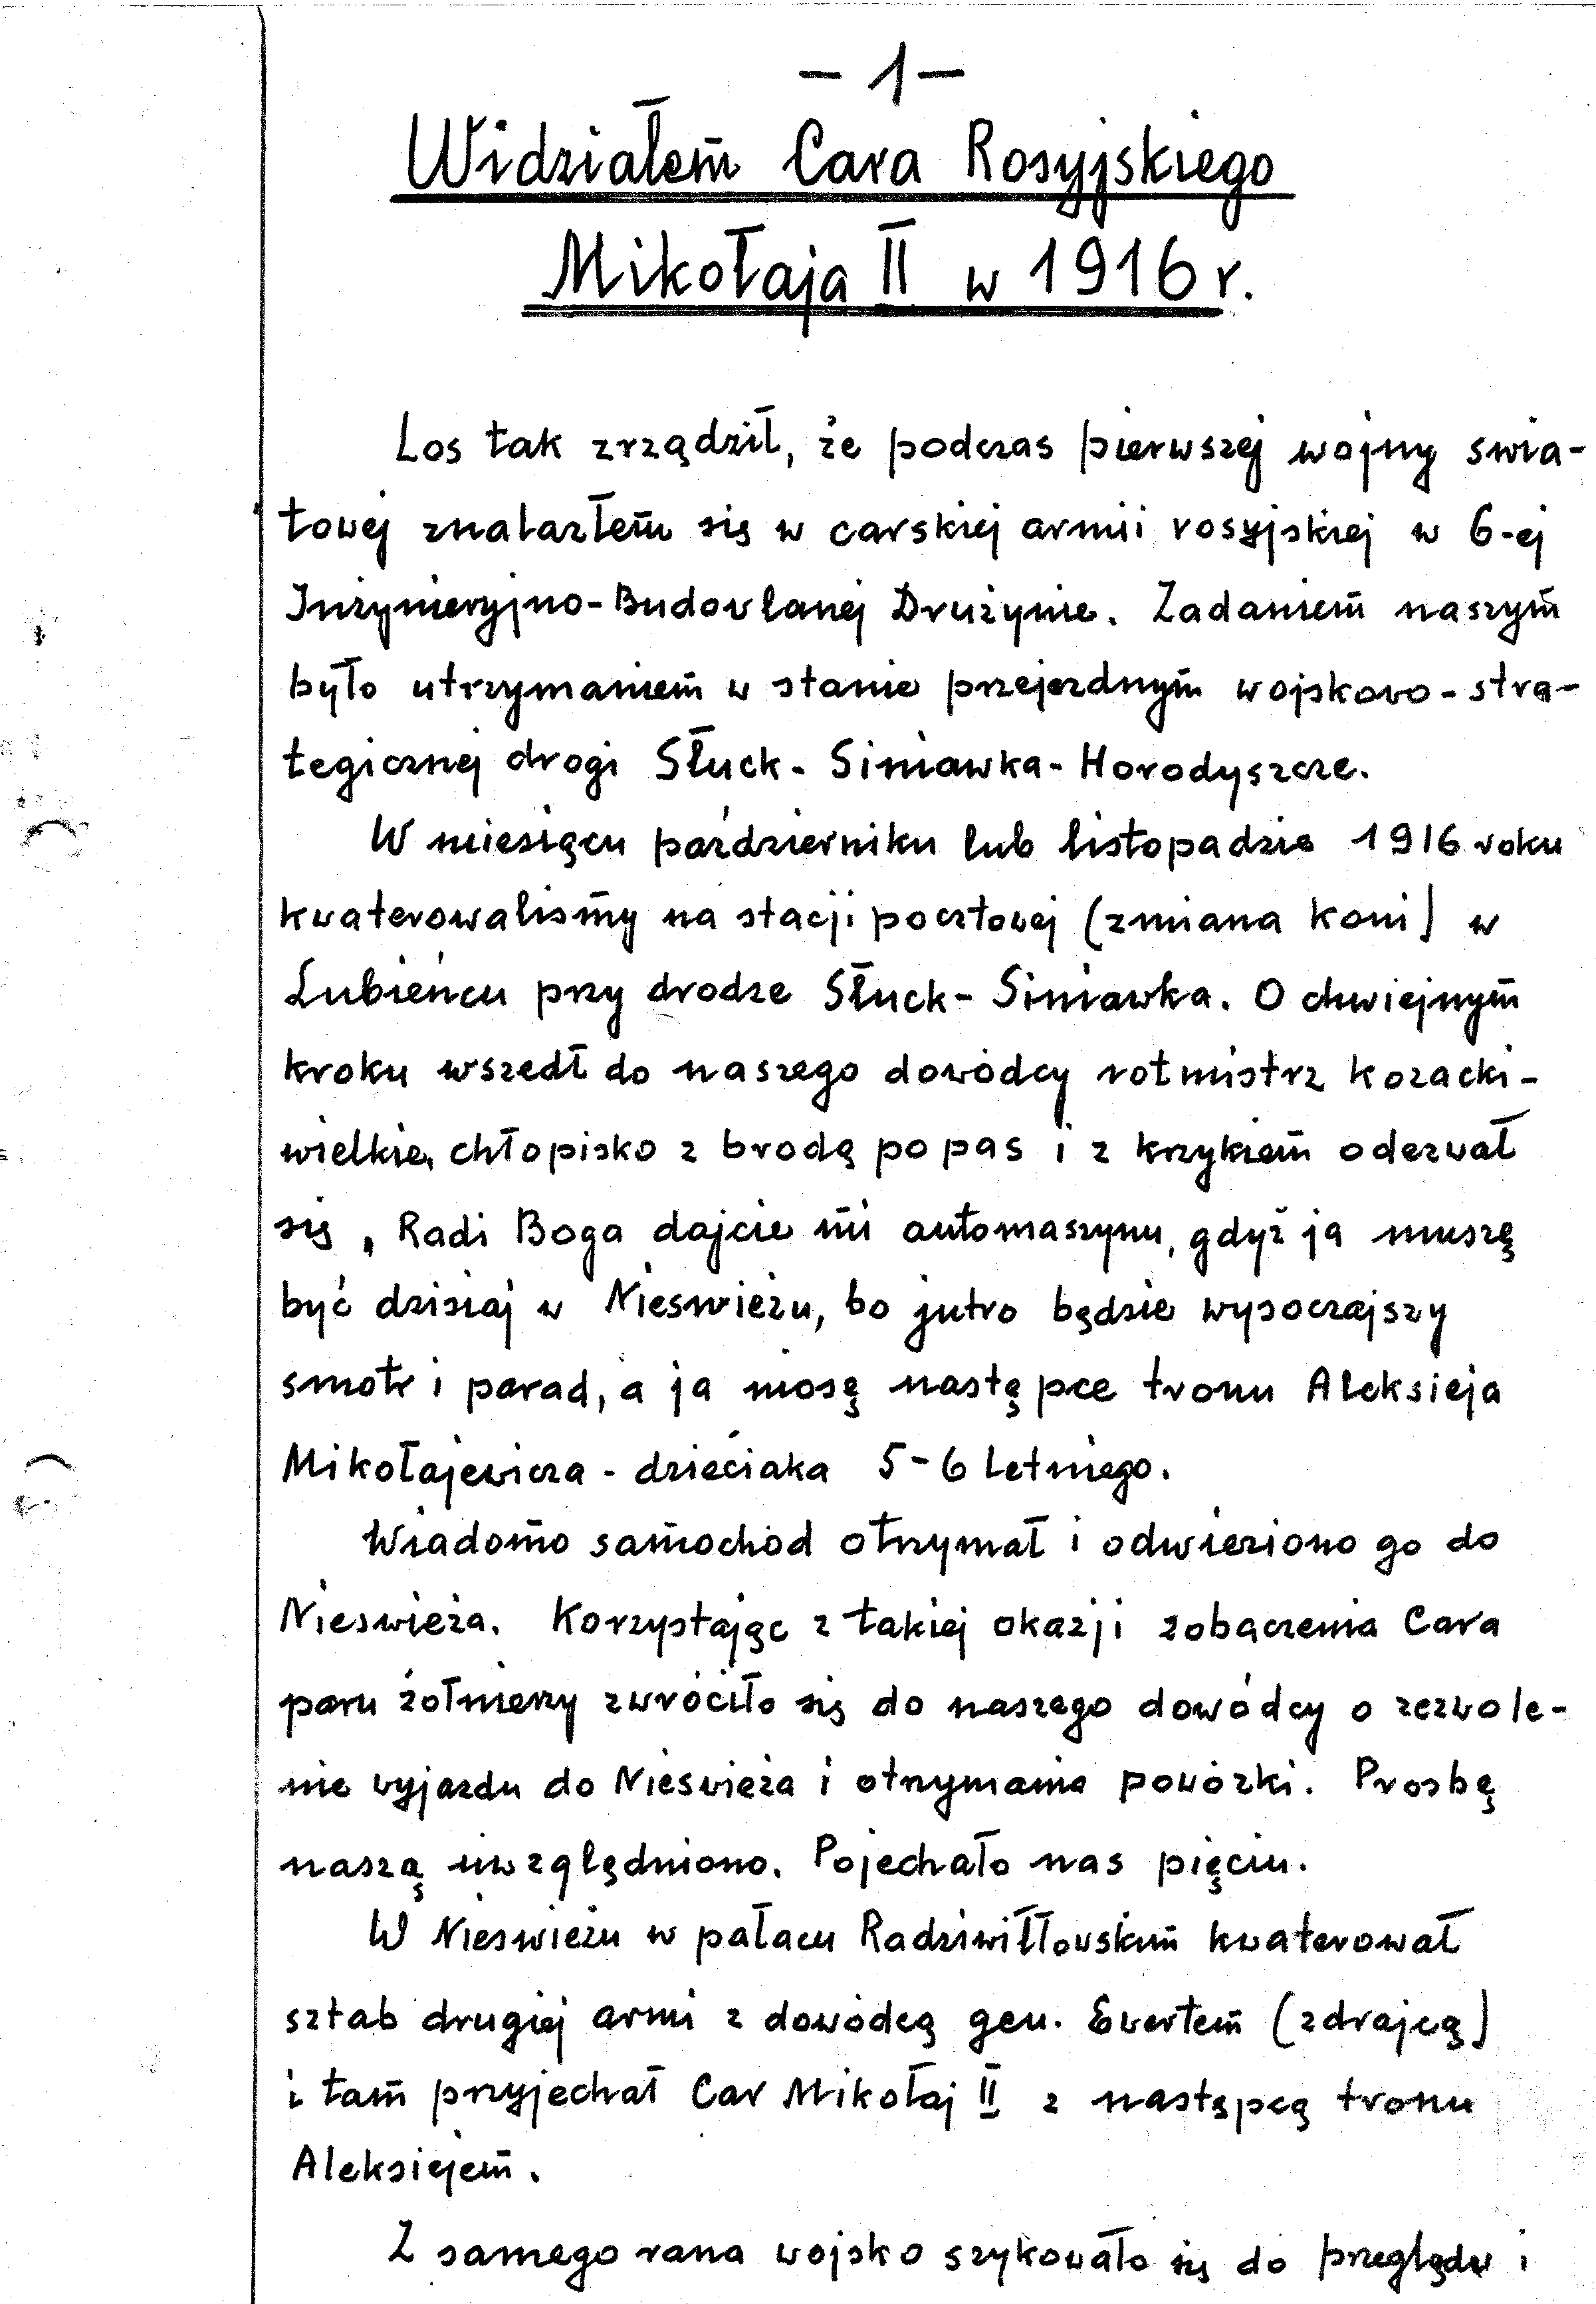 - 1 -
Widziałem Cara Rosyjskiego
Mikołaja II w 1916 r.
Los tak zrządził, że podczas pierwszej wojny świa-
towej znalazłem się w carskiej armii rosyjskiej w 6-ej
Inżynieryjno-Budowlanej Drużynie. Zadaniem naszym
było utrzymaniem w stanie przejezdnym wojskowo-stra-
tegicznej drogi Słuck - Siniawka - Horodyszcze.
W miesiącu październiku lub listopadzie 1916 roku
kwaterowaliśmy na stacji pocztowej (zmiana koni) w
Lubieńcu przy drodze Słuck - Siniawka. O chwiejnym
kroku wszedł do naszego dowódcy rotmistrz kozacki -
wielkie, chłopisko z brodą po pas i z krzykiem odezwał
się „Radi Boga dajcie mi automaszynu, gdyż ja muszę
być dzisiaj w Nieświeżu, bo jutro będzie wysoczajszy
smotr i parad, a ja niosę następce tronu Aleksieja
Mikołajewicza - dzieciaka 5-6 letniego.
Wiadomo samochód otrzymał i odwieziono go do
Nieświeża. Korzystając z takiej okazji zobaczenia Cara
paru żołnierzy zwróciło się do naszego dowódcy o zezwole-
nie wyjazdu do Nieświeża i otrzymania powózki. Prośbę
naszą uwzględniono. Pojechało nas pięciu.
W Nieświeżu w pałacu Radziwiłłowskim kwaterował
sztab drugiej armi z dowódcą gen. Ewertem (zdrajcą)
i tam przyjechał Car Mikołaj II z następcą tronu
Aleksiejem.
Z samego rana wojsko szykowało się do przeglądu i